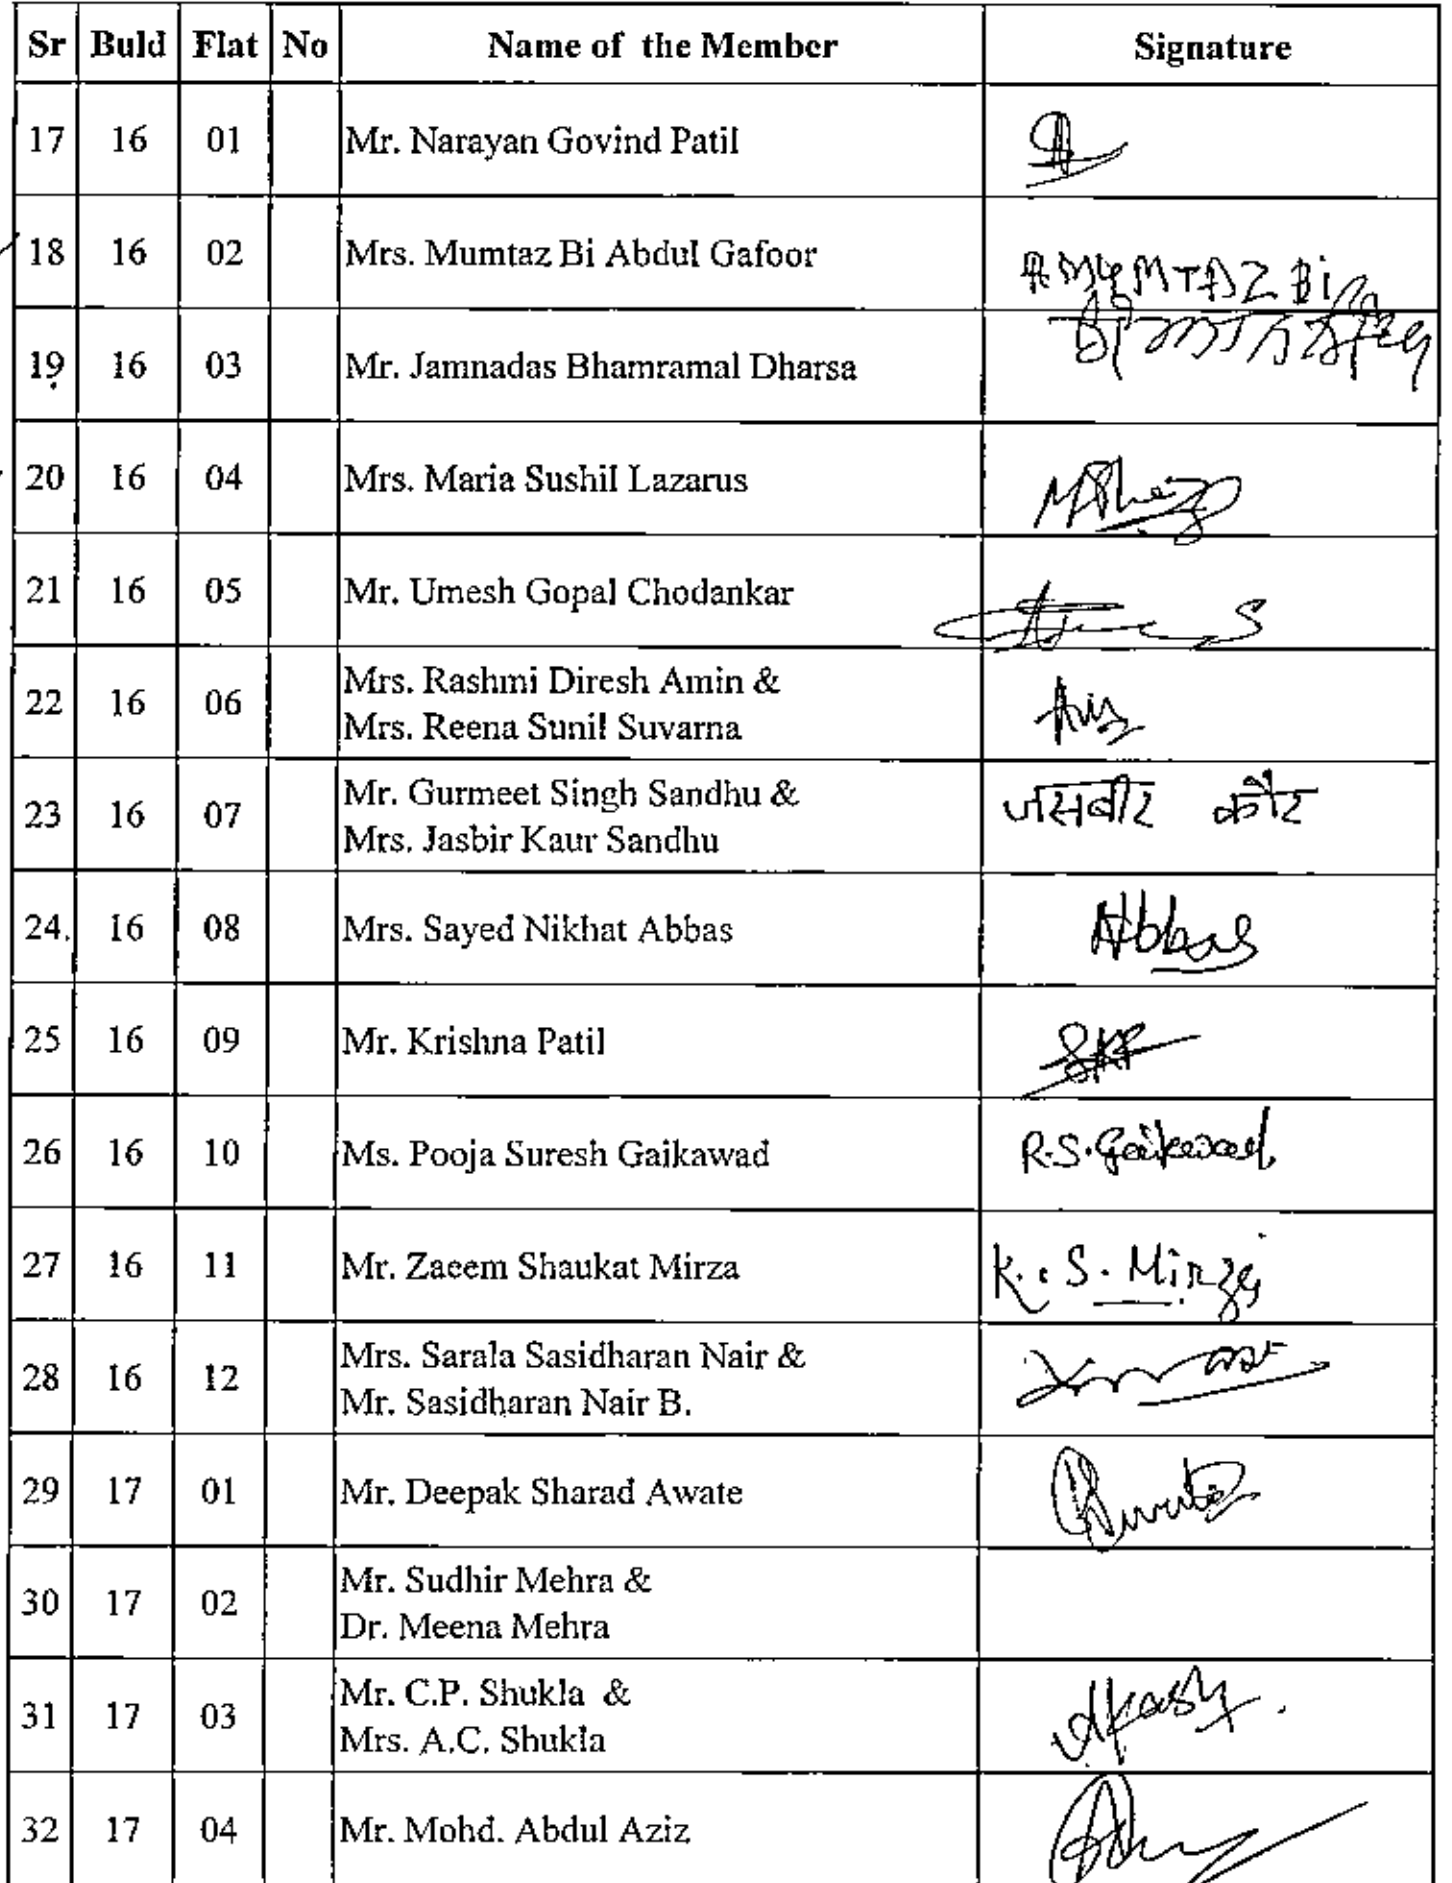 Sr Buld Flat No Name of the Member Signature
17 16 01 Mr. Narayan Govind Patil
18 16 02 Mrs. Mumtaz Bi Abdul Gafoor MUMTAZ Bi
19 16 03 Mr. Jamnadas Bhamramal Dharsa
20 16 04 Mrs. Maria Sushil Lazarus
21 16 05 Mr. Umesh Gopal Chodankar
22 16 06 Mrs. Rashmi Diresh Amin &
Mrs. Reena Sunil Suvarna
23 16 07 Mr. Gurmeet Singh Sandhu & जसबीर कौर
Mrs. Jasbir Kaur Sandhu
24. 16 08 Mrs. Sayed Nikhat Abbas Abbas
25 16 09 Mr. Krishna Patil SKP
26 16 10 Ms. Pooja Suresh Gaikawad R.S.Gaikawad
27 16 11 Mr. Zaeem Shaukat Mirza K. S. Mirza
28 16 12 Mrs. Sarala Sasidharan Nair &
Mr. Sasidharan Nair B.
29 17 01 Mr. Deepak Sharad Awate
30 17 02 Mr. Sudhir Mehra &
Dr. Meena Mehra
31 17 03 Mr. C.P. Shukla &
Mrs. A.C. Shukla
32 17 04 Mr. Mohd. Abdul Aziz